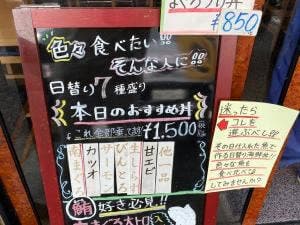 まぐろ丼
¥850
色々食べたい
そんな人に
日替り7種盛り
本日のおすすめ丼
これ全部乗って
¥1,500
他一品
甘エビ
生しらす
びんとろ
サーモン
カツオ
南まぐろ
鮪好き必見!!
大トロ
迷ったら
コレを
選ぶべし
その日仕入れた魚で
作る日替り海鮮丼!!
色々な魚を
食べ比べを
してみませんか?